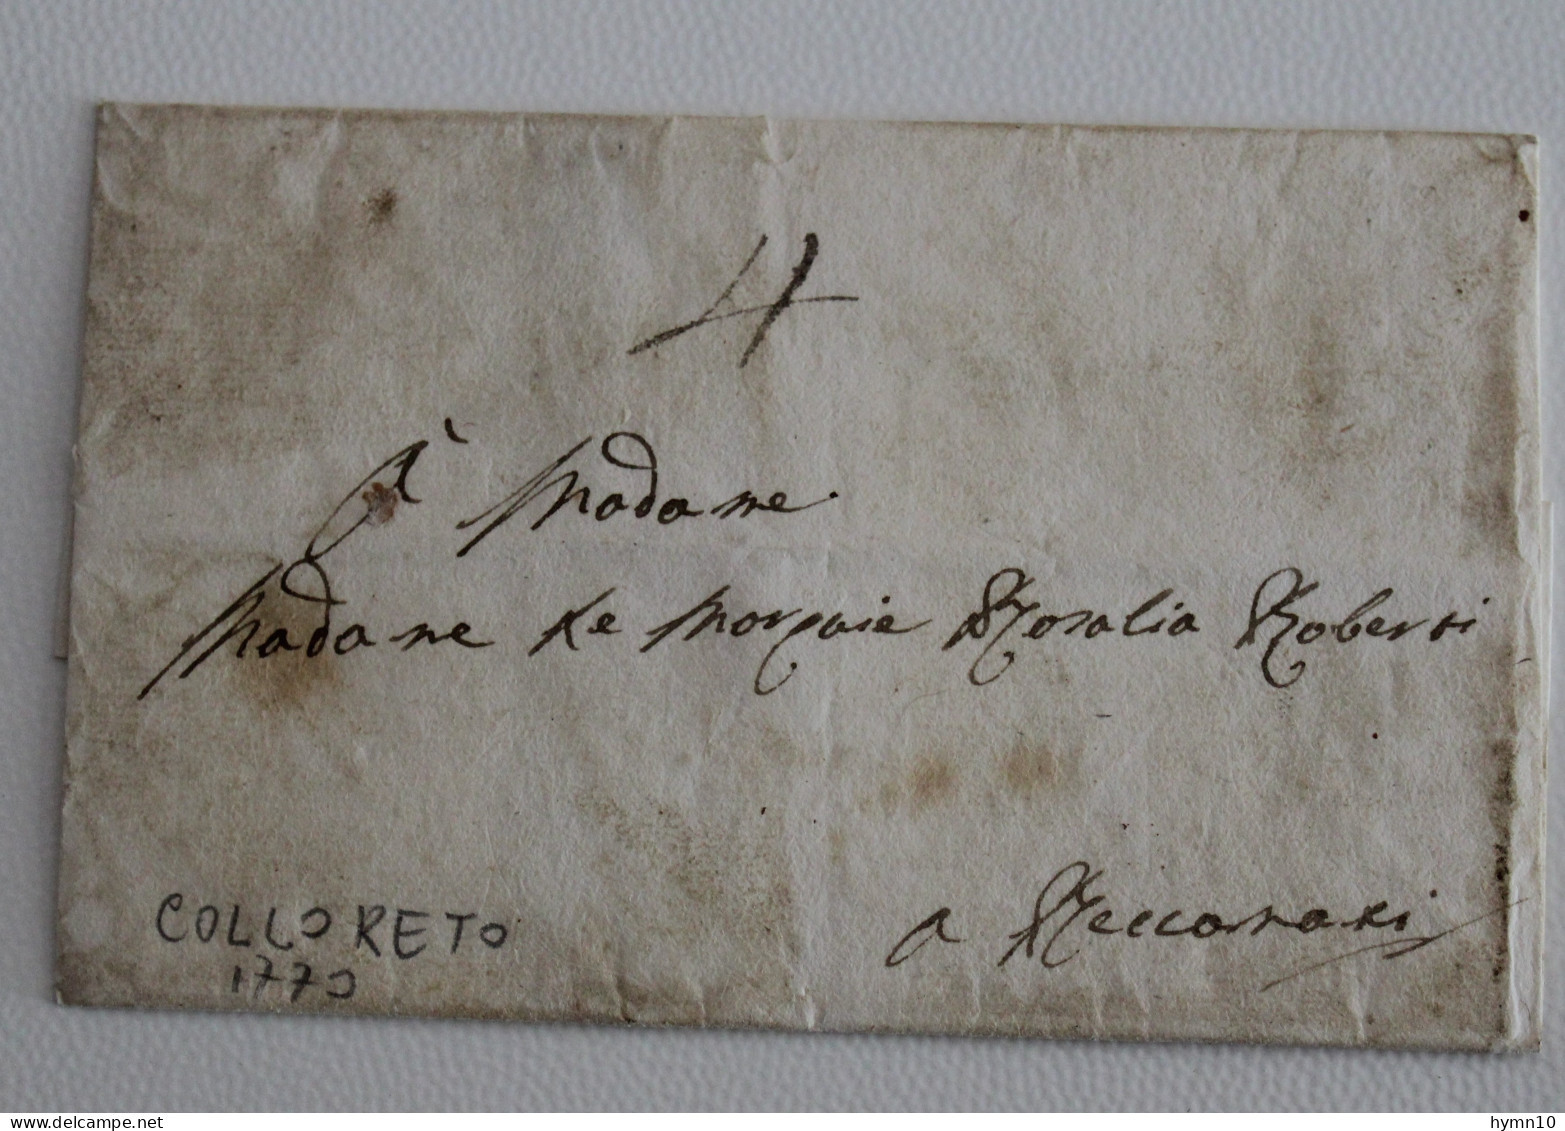 4
à Madame
Madame Le Marquise Rosalia Roberti
a Reccanati
COLLORETO
1770
delcampe.net
hymn10